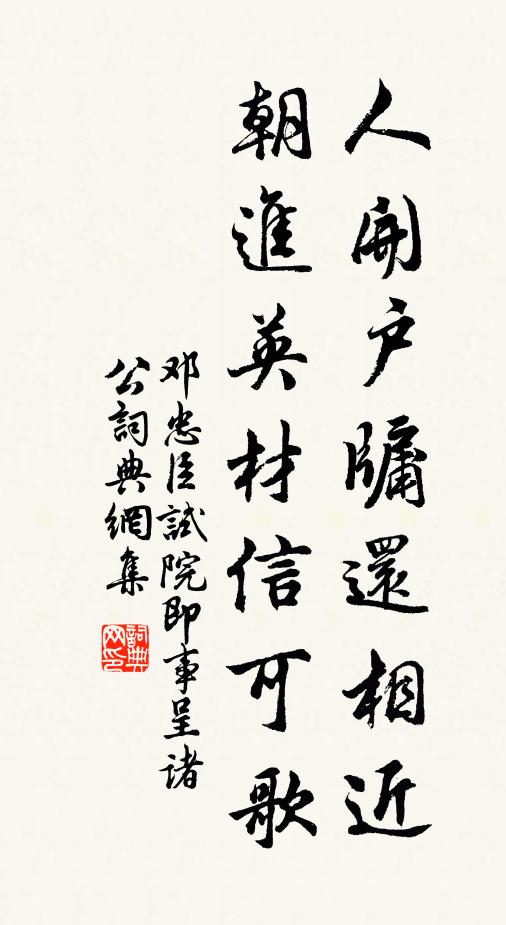 人開戶牖還相近
朝進英材信可歌
邓忠臣試院即事呈诸
公詞典網集
詞典
网印